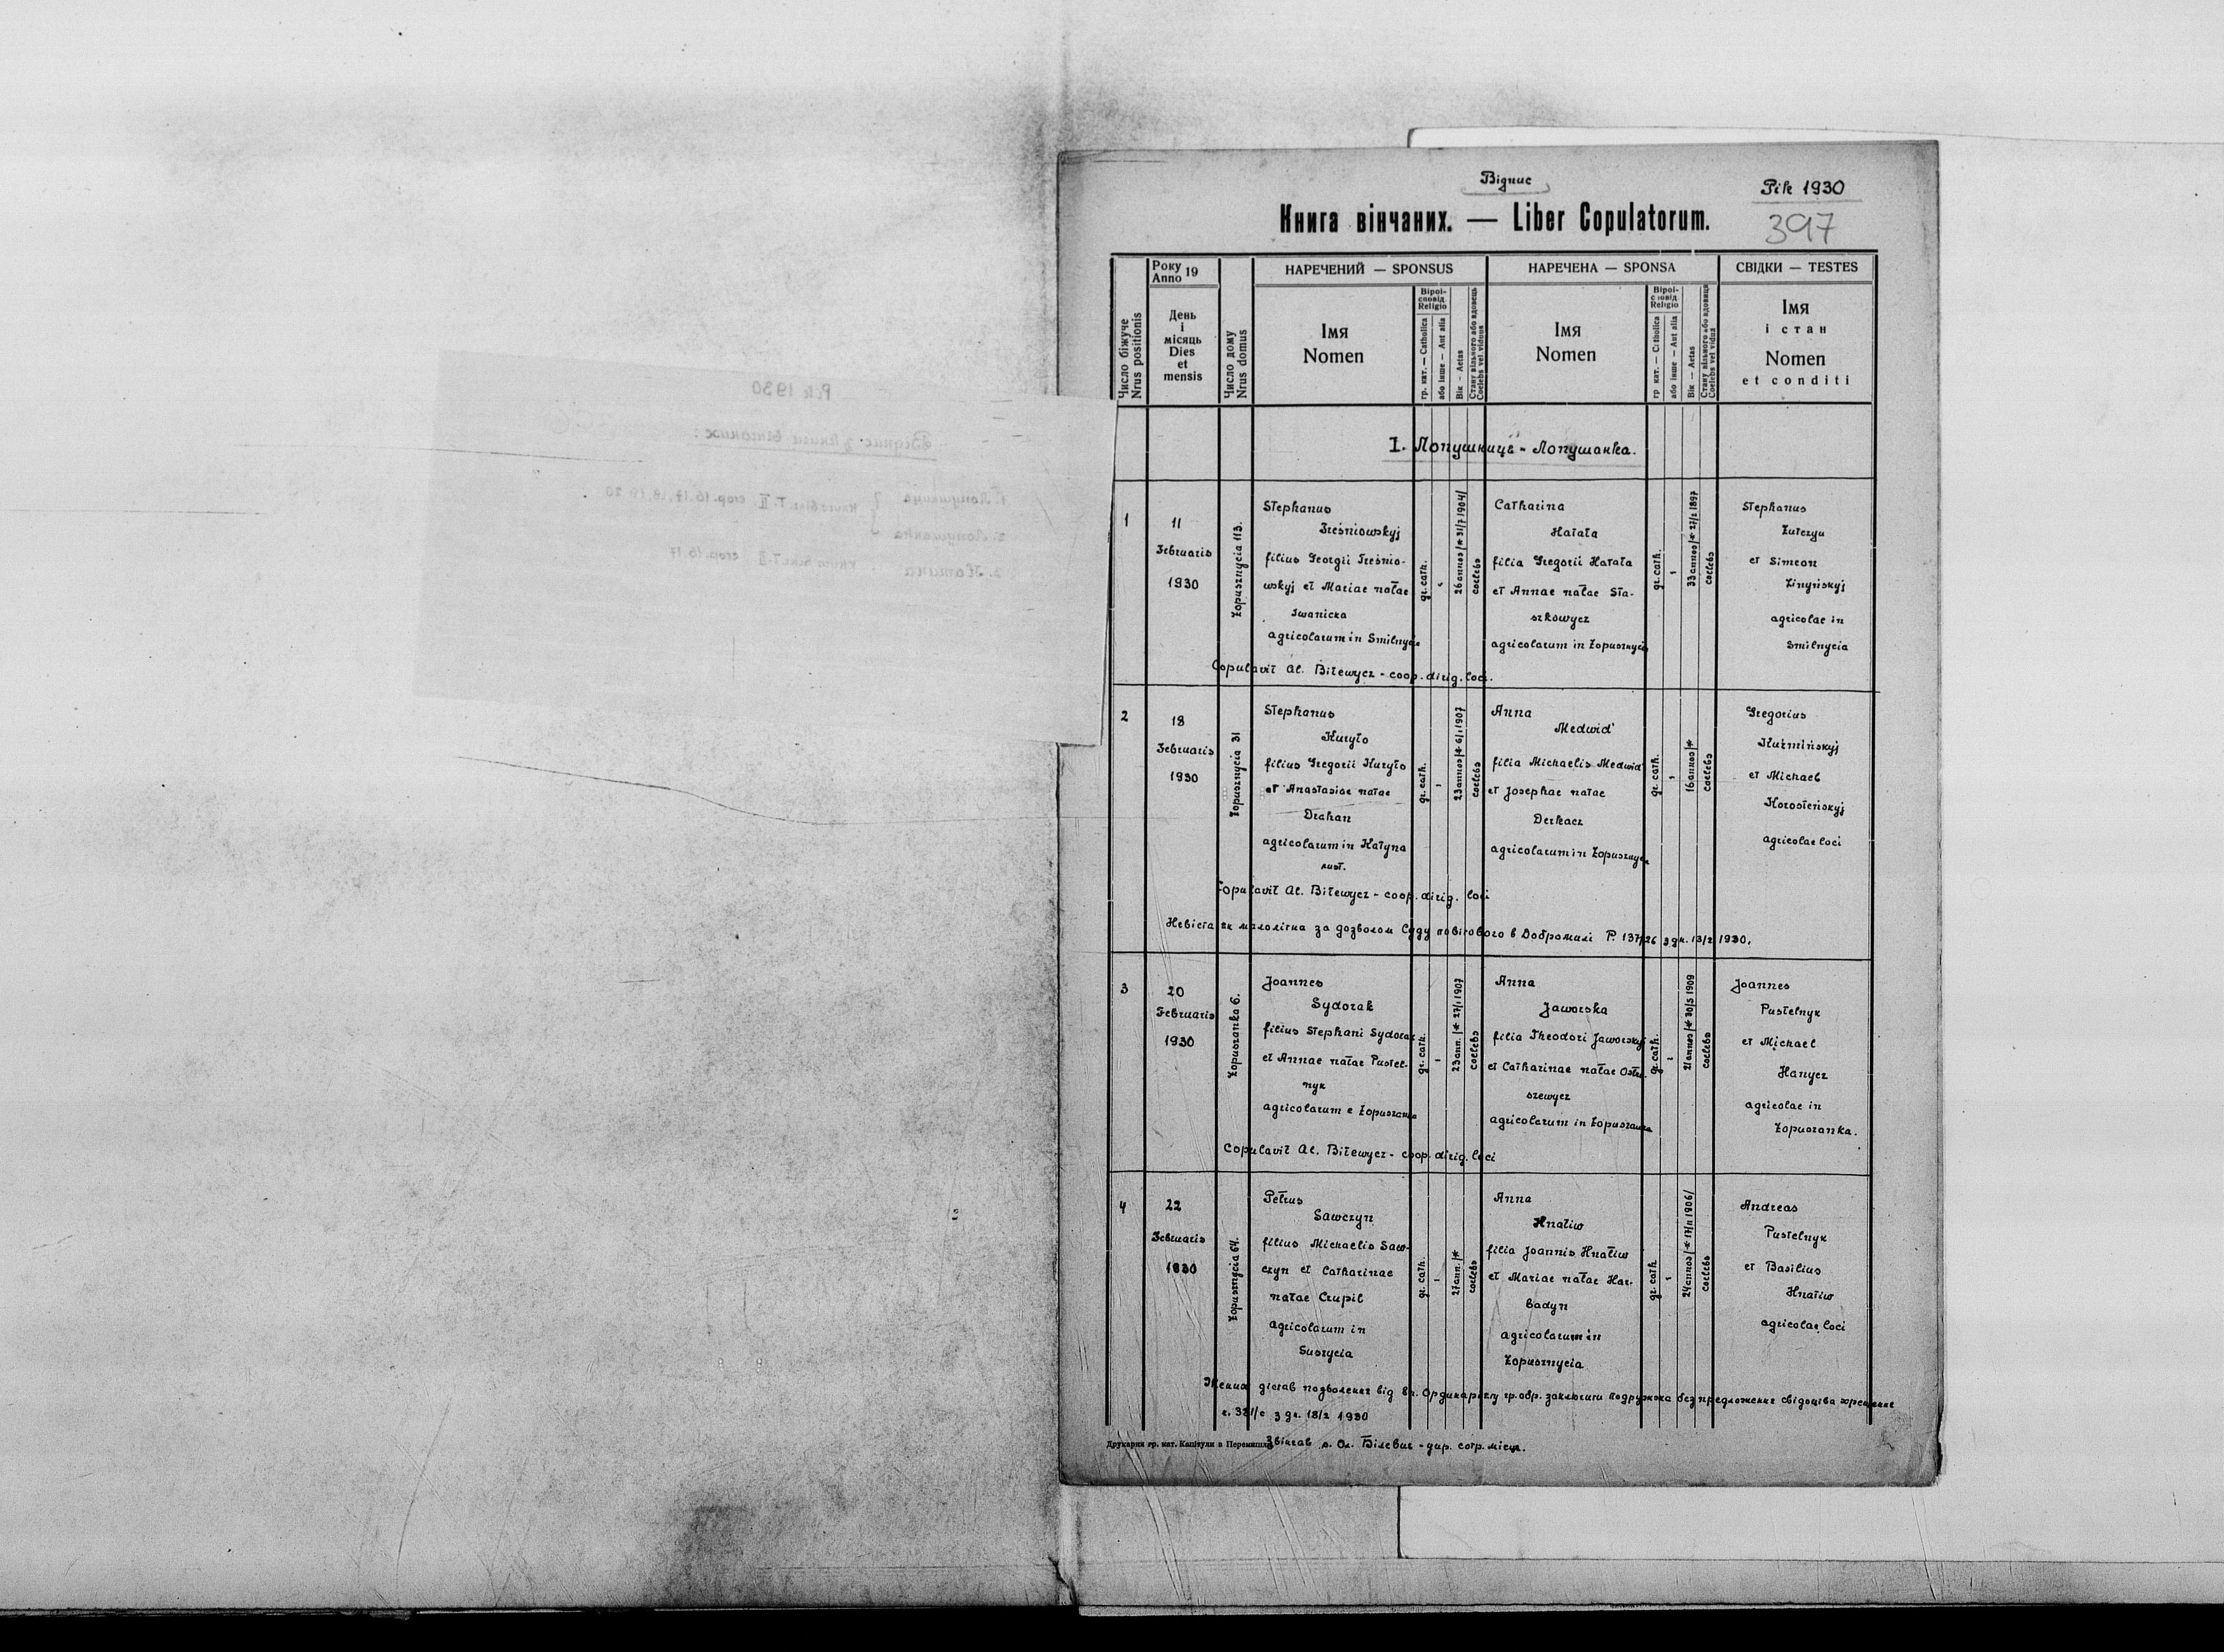 Відпис
Рік 1930
397
Книга вінчаних. — Liber Copulatorum.
Число біжуче
Nrus positionis
Року
Anno 19
День
і
місяць
Dies
et
mensis
Число дому
Nrus domus
НАРЕЧЕНИЙ — SPONSUS
Імя
Nomen
Віроі-
сповід
Religio
гр. кат. — Catholica
або інше — Aut alia
Вік — Aetas
Стану вільного або вдовець
Coelebs vel viduus
НАРЕЧЕНА — SPONSA
Імя
Nomen
Віроі-
сповід
Religio
гр кат. — Catholica
або інше — Aut alia
Вік — Aetas
Стану вільного або вдовиця
Coelebs vel vidua
СВІДКИ — TESTES
Імя
і стан
Nomen
et conditi
I. Лопушниця - Лопушанка.
1
11
Februaris
1930
Łopusznycia 113.
Stephanus
Treśniowskyj
filius Georgii Treśnio-
wskyj et Mariae natae
Iwanicka
agricolarum in Smilnycia
gr. cath.
26 annos /* 31/7 1904/
coelebs
Catharina
Hałała
filia Gregorii Hałała
et Annae natae Sta-
szkowycz
agricolarum in Łopusznycia
gr. cath.
33 annos /* 27/2 1897
coelebs
Stephanus
et Simeon
Zinyńskyj
agricolae in
Smilnycia
Copulavit Al. Biłewycz - coop. dirig. loci.
2
18
Februaris
1930
Łopusznycia 31
Stephanus
Kuryło
filius Gregorii Kuryło
et Anastasiae natae
Drahan
agricolarum in Katyna
rust.
gr. cath.
23 annos /* 6/1 1907
coelebs
Anna
Medwid'
filia Michaelis Medwid'
et Josephae natae
Derkacz
agricolarum in Łopusznycia
gr. cath.
16 annos /*
coelebs
Gregorius
Kuźmińskyj
et Michael
Korosteńskyj
agricolae loci
Copulavit Al. Biłewycz - coop. dirig. loci
Невіста як малолітна за дозволом Суду повітового в Добромилі Р. 137/26 з дн. 13/2 1930.
3
20
Februaris
1930
Łopuszanka 6.
Joannes
Sydorak
filius Stephani Sydorak
et Annae natae Pustel-
nyk
agricolarum e Łopuszanka
gr. cath.
23 ann. /* 27/1 1907
coelebs
Anna
Jaworska
filia Theodori Jaworskyj
et Catharinae natae
szewycz
agricolarum in Łopuszanka
gr. cath.
21 annos /* 30/5 1909
coelebs
Joannes
Pustelnyk
et Michael
Hanycz
agricolae in
Łopuszanka.
Copulavit Al. Biłewycz - coop. dirig. loci
4
22
Februaris
1930
Łopusznycia 64.
Petrus
Sawczyn
filius Michaelis Saw-
czyn et Catharinae
natae Czupil
agricolarum in
Suszycia
gr. cath.
27 ann. /*
coelebs
Anna
Hnatiw
filia Joannis Hnatiw
et Mariae natae Har-
badyn
agricolarum in
Łopusznycia
gr. cath
24 annos /* 17/11 1906/
coelebs
Andreas
Pustelnyk
et Basilius
Hnatiw
agricolae loci
Жених дістав подволення від Еп. Ординаріяту гр. обр. заключити подружжа без предложення свідоцтва хрещення
ч. 321/с з дн. 18/2 1930
Звінчав о. Ол. Білевич - упр. сотр. місця.
Друкарня гр. кат. Капітули в Перемишлі